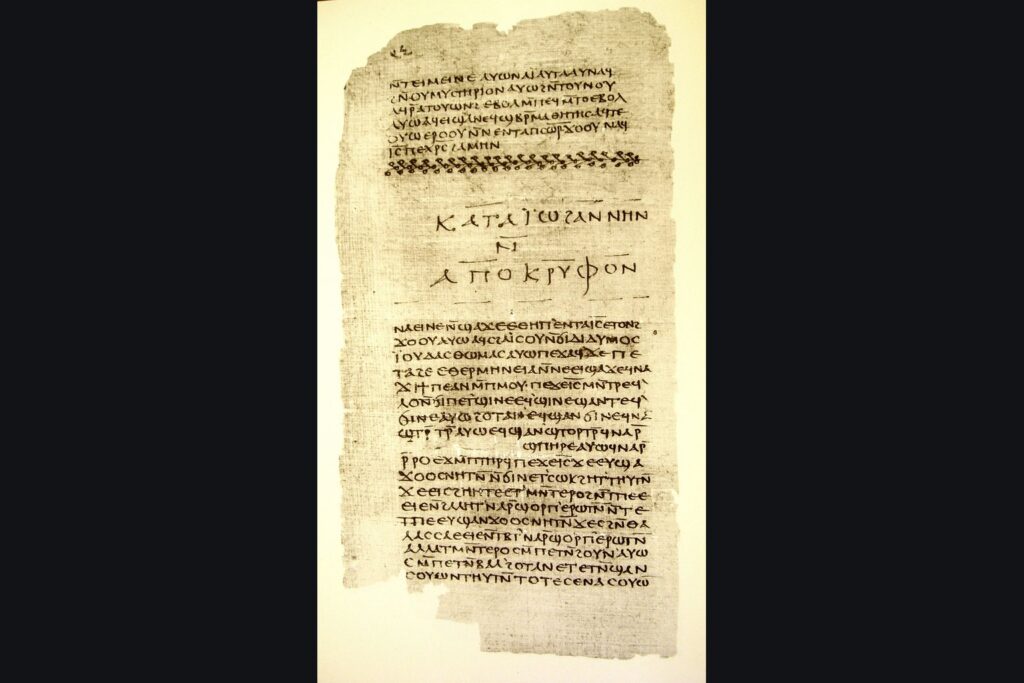 ⲛ̄ⲧⲉⲓⲙⲉⲓⲛⲉ ⲁⲩⲱ ⲛⲁⲓ ⲁⲩⲧⲁⲁⲩ ⲛⲁϥ
ϩⲛ̄ⲟⲩⲙⲩⲥⲧⲏⲣⲓⲟⲛ ⲁⲩⲱ ϩⲛ̄ⲧⲟⲩⲛⲟⲩ
ⲁϥⲣ̄ⲁⲧⲟⲩⲱⲛϩ ⲉⲃⲟⲗ ⲙ̄ⲡⲉϥⲙ̄ⲧⲟ ⲉⲃⲟⲗ
ⲁⲩⲱ ⲁϥⲉⲓ ϣⲁ ⲛⲉϥϣⲃⲣ̄ⲙⲁⲑⲏⲧⲏⲥ ⲁϥⲧⲉ
ⲟⲩⲱ ⲉⲣⲟⲟⲩ ⲛ̄ⲛⲉⲛⲧⲁⲡⲥⲱ̄ⲣ ϫⲟⲟⲩ ⲛⲁϥ
ⲓ̅ⲥ̅ ⲡⲉⲭ̅ⲣ̅ⲥ̅ ϩⲁⲙⲏⲛ
ⲕⲁⲧⲁ ⲓ̈ⲱϩⲁⲛⲛⲏⲛ
ⲛ̄
ⲁⲡⲟⲕⲣⲩⲫⲟⲛ
ⲛⲁⲉⲓ ⲛⲉ ⲛ̄ϣⲁϫⲉ ⲉⲑⲏⲡ ⲉⲛⲧⲁⲓ̅ⲥ̅ ⲉⲧⲟⲛϩ
ϫⲟⲟⲩ ⲁⲩⲱ ⲁϥⲥϩⲁⲓ̈ⲥⲟⲩ ⲛ̄ϭⲓ ⲇⲓⲇⲩⲙⲟⲥ
ⲓ̈ⲟⲩⲇⲁⲥ ⲑⲱⲙⲁⲥ ⲁⲩⲱ ⲡⲉϫⲁϥ ϫⲉ ⲡⲉ
ⲧⲁϩⲉ ⲉⲑⲉⲣⲙⲏⲛⲉⲓⲁ ⲛ̄ⲛⲉⲉⲓϣⲁϫⲉ ϥⲛⲁ
ϫⲓ ϯⲡⲉ ⲁⲛ ⲙ̄ⲡⲙⲟⲩ ⲡⲉϫⲉ ⲓ̅ⲥ̅ ⲙⲛ̄ⲧⲣⲉϥ
ⲗⲟ ⲛ̄ϭⲓ ⲡⲉⲧϣⲓⲛⲉ ⲉϥϣⲓⲛⲉ ϣⲁⲛⲧⲉϥ
ϭⲓⲛⲉ ⲁⲩⲱ ϩⲟⲧⲁⲛ ⲉϥϣⲁⲛϭⲓⲛⲉ ϥⲛⲁ
ϣⲧⲣ̄ⲧⲣ̄ ⲁⲩⲱ ⲉϥϣⲁⲛϣⲧⲟⲣⲧⲣ̄ ϥⲛⲁⲣ̄
ϣⲡⲏⲣⲉ ⲁⲩⲱ ϥⲛⲁⲣ̄
ⲣ̄ⲣⲟ ⲉϫⲙ̄ ⲡⲧⲏⲣϥ ⲡⲉϫⲉ ⲓ̅ⲥ̅ ϫⲉ ⲉⲩϣⲁ
ϫⲟⲟⲥ ⲛⲏⲧⲛ̄ ⲛ̄ϭⲓ ⲛⲉⲧⲥⲱⲕ ϩⲏⲧ ⲑⲏⲩⲧⲛ̄
ϫⲉ ⲉⲓⲥϩⲏⲏⲧⲉ ⲉⲧⲙⲛ̄ⲧⲉⲣⲟ ϩⲛ̄ ⲧⲡⲉ ⲉ
ⲉⲓⲉ ⲛ̄ϩⲁⲗⲏⲧ ⲛⲁⲣ̄ ϣⲟⲣⲡ ⲉⲣⲱⲧⲛ̄ ⲛ̄ⲧⲉ
ⲧⲡⲉ ⲉⲩϣⲁⲛϫⲟⲟⲥ ⲛⲏⲧⲛ̄ ϫⲉ ⲥϩⲛ̄ ⲑⲁ
ⲗⲁⲥⲥⲁ ⲉⲉⲓⲉ ⲛ̄ⲧⲃⲧ ⲛⲁⲣ̄ ϣⲟⲣⲡ ⲉⲣⲱⲧⲛ̄
ⲁⲗⲗⲁ ⲧⲙⲛ̄ⲧⲉⲣⲟ ⲥⲙ̄ⲡⲉⲧⲛ̄ϩⲟⲩⲛ ⲁⲩⲱ
ⲥⲙ̄ⲡⲉⲧⲛ̄ⲃⲁⲗ ϩⲟⲧⲁⲛ ⲉⲧⲉⲧⲛ̄ϣⲁⲛ
ⲥⲟⲩⲱⲛ ⲧⲏⲩⲧⲛ̄ ⲧⲟⲧⲉ ⲥⲉⲛⲁⲥⲟⲩⲱ